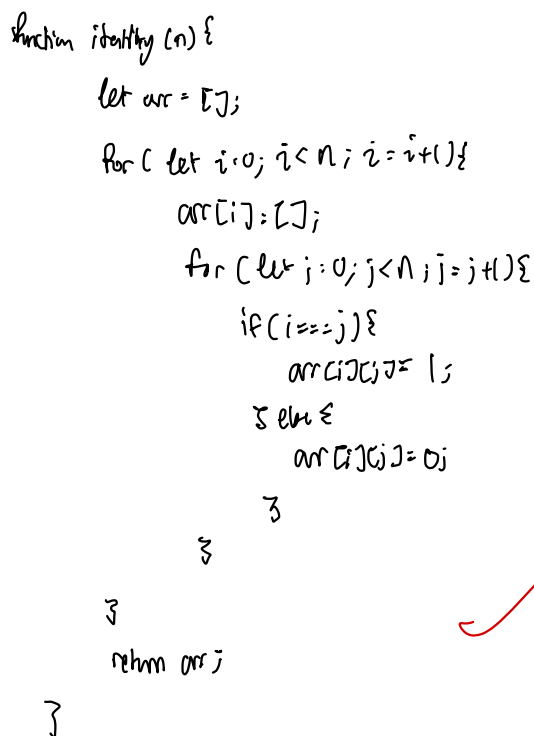 function identity (n) {
let arr = [];
for ( let i=0; i<n; i=i+1){
arr[i]=[];
for (let j=0; j<n; j=j+1){
if(i===j){
arr[i][j]= 1;
} else {
arr[i][j]=0;
}
}
}
return arr;
}